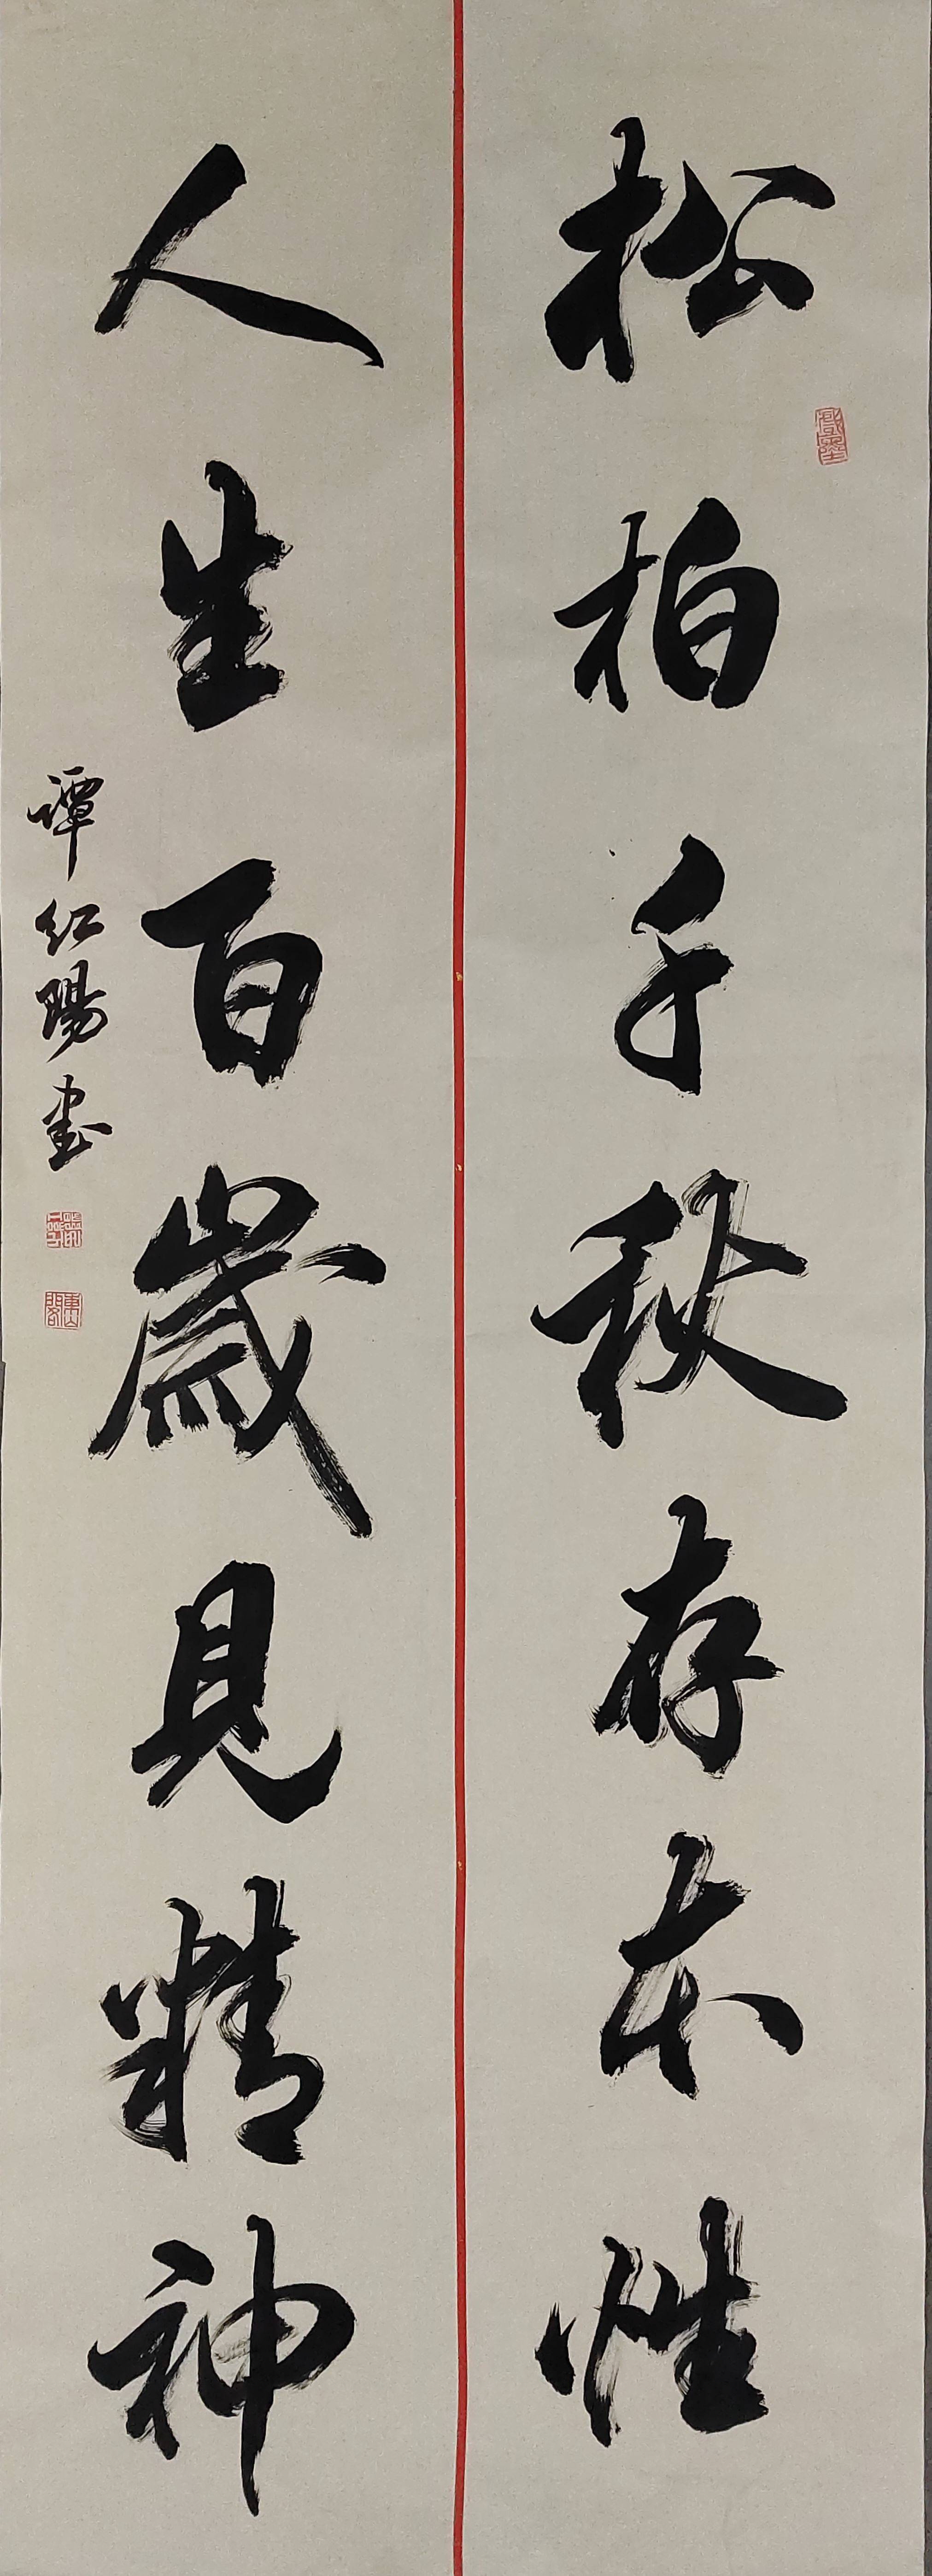 松柏千秋存本性
人生百歲見精神
谭红陽书